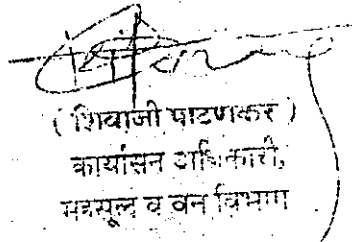 ( शिवाजी पाटणकर )
कार्यासन अधिकारी,
महसूल व वन विभाग